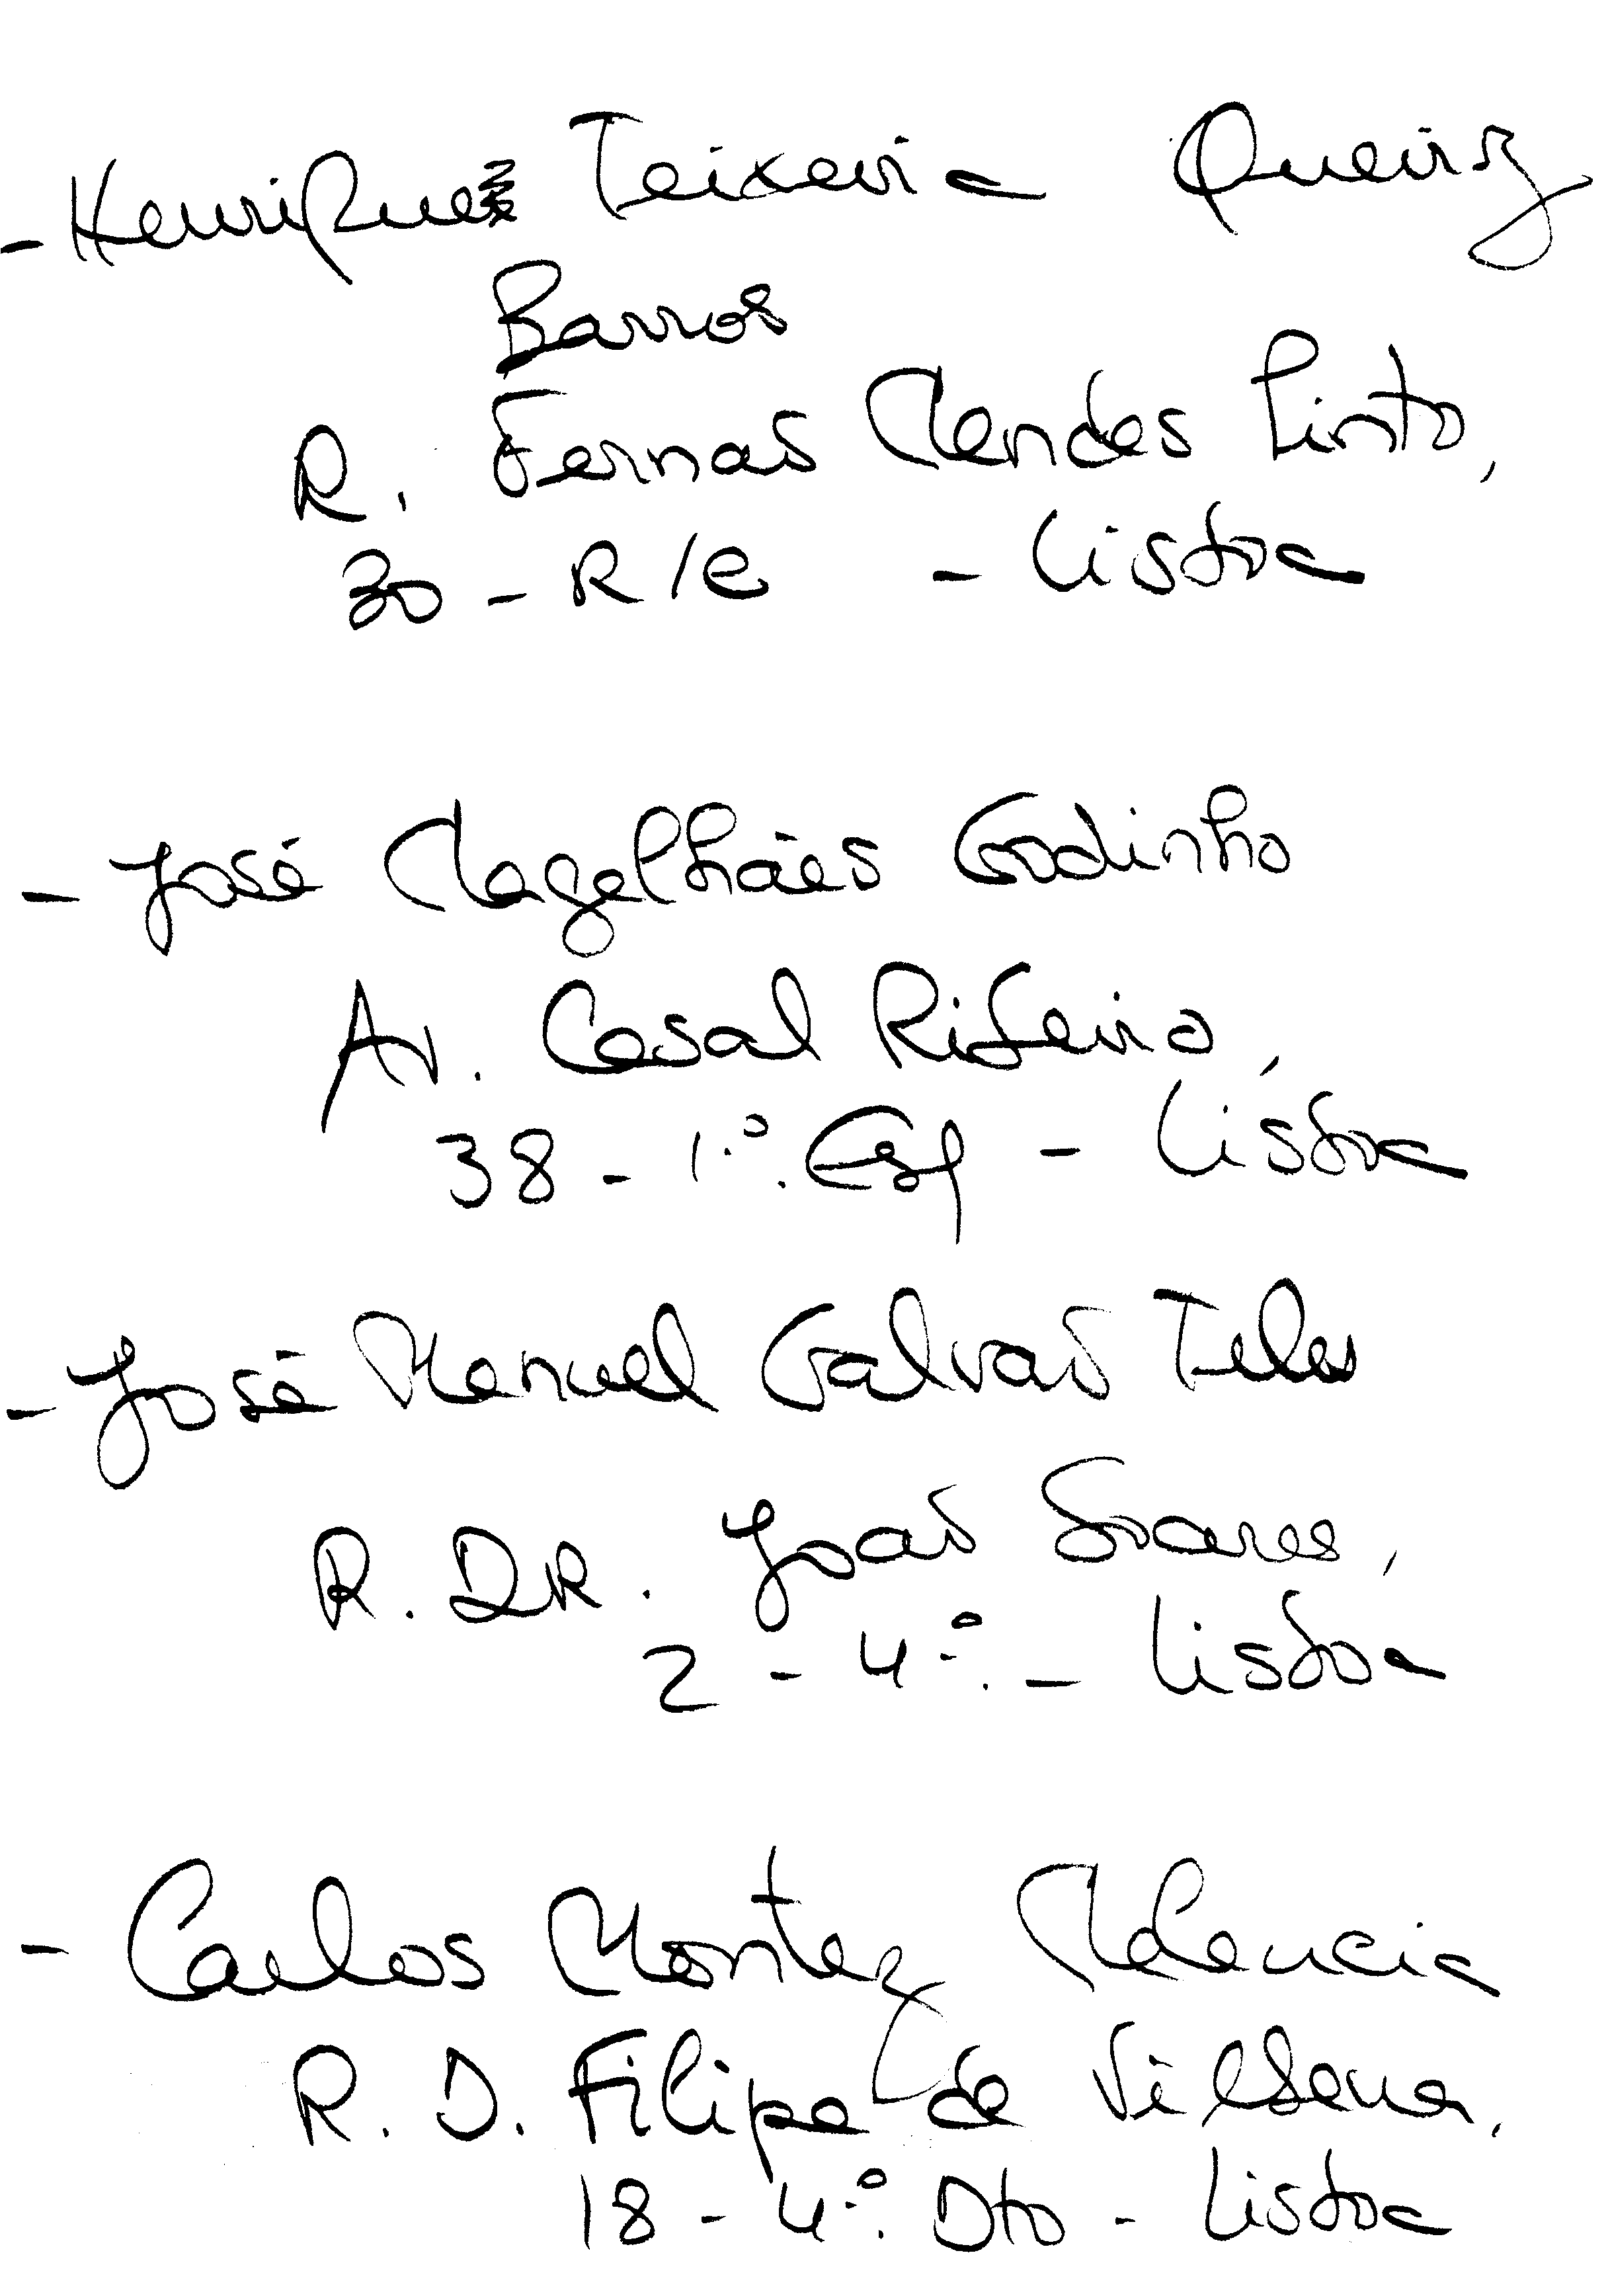 - Henrique Teixeira Queiroz
Barros
R. Fernão Mendes Pinto,
30 - R/C - Lisboa
- José Magalhães Godinho
Av. Casal Ribeiro,
38 - 1.º. Esq - Lisboa
- José Manuel Galvão Teles
R. DR. João Soares,
2 - 4º. - Lisboa
- Carlos Montez Melancia
R. D. Filipe de Vilhena,
18 - 4.º. Dto - Lisboa